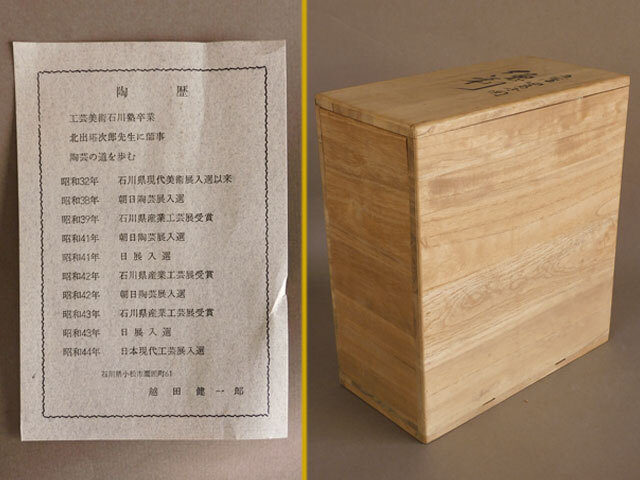 陶歴
工芸美術石川塾卒業
北出塔次郎先生に師事
陶芸の道を歩む
昭和32年 石川県現代美術展入選以来
昭和38年 朝日陶芸展入選
昭和39年 石川県産業工芸展受賞
昭和41年 朝日陶芸展入選
昭和41年 日展入選
昭和42年 石川県産業工芸展受賞
昭和42年 朝日陶芸展入選
昭和43年 石川県産業工芸展受賞
昭和43年 日展入選
昭和44年 日本現代工芸展入選
石川県小松市鷹匠町61
越田健一郎